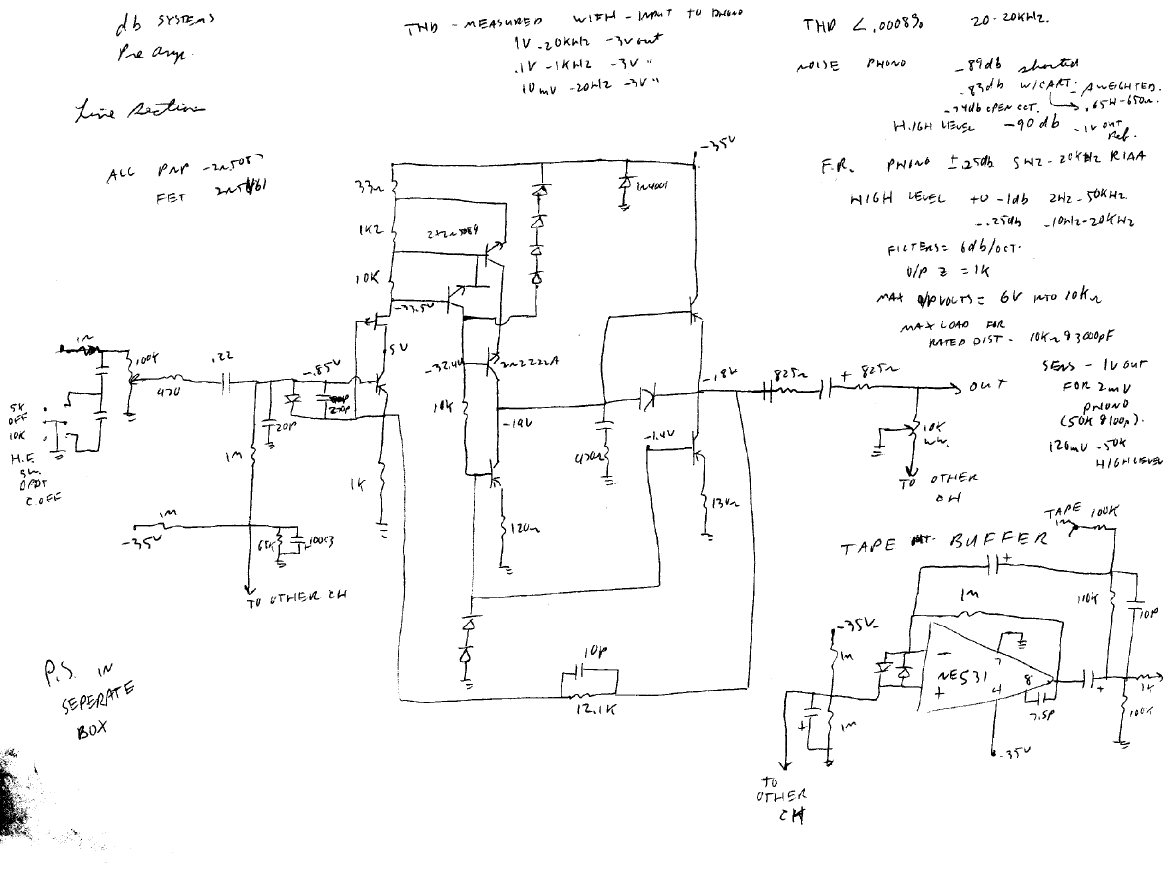 db SYSTEMS
Pre amp.
Line section
ALL PNP - 2N5087
FET 2N5461
THD - MEASURED WITH - INPUT TO PHONO
1V - 20KHz - 3V out
.1V - 1KHz - 3V "
10mV - 20Hz - 3V "
THD < .0008% 20-20KHz.
NOISE PHONO -89db shorted
-83db W/CART. - A WEIGHTED.
-74db OPEN CCT. .65H-650Ω.
HIGH LEVEL -90db - 1V OUT
Ref.
F.R. PHONO ±.25db 5Hz-20KHz RIAA
HIGH LEVEL +0 -1db 2Hz-50KHz.
-.25db -10Hz-20KHz
FILTERS = 6db/OCT.
O/P Z = 1K
MAX O/P VOLTS = 6V INTO 10KΩ
MAX LOAD FOR
RATED DIST - 10KΩ & 3000pF
SENS - 1V OUT
FOR 2mV
PHONO
(50K & 100p).
120mV - 50K
HIGH LEVEL
-35V
33Ω
1N4001
1K2
2x2N5089
10K
-33.5V
IN
100K
.22
470
-.85V
5V
-32.4V
2N2222A
-1.8V
825Ω
+ 825Ω
OUT
5K
OFF
10K
H.F.
SW.
DPDT
C.OFF
20p
270p
10K
-19V
10K
WW.
1M
1K
470Ω
-1.4V
TO OTHER
CH
120Ω
130Ω
1M
-35V
68K
+ 100 & 3
TO OTHER CH
TAPE 100K
IN
TAPE BUFFER
+
1M
110K
10p
-35V
1M
-
NE531
+
7
4
8
7.5p
+
1K
100K
+
1M
-35V
10p
12.1K
TO
OTHER
CH
P.S. IN
SEPERATE
BOX